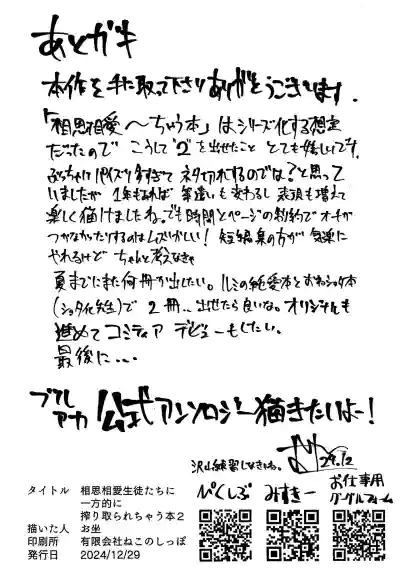 あとガキ
本作を手に取って下さりありがとうございます.
「相思相愛〜ちゃう本」はシリーズ化する想定
だったので こうして"2"を出せたこと とても嬉しいです。
ぶっちゃけパイズリすぎて ネタ切れするのでは?と思って
いましたが 1年もあれば 筆遣いも変わるし 表現も増えて
楽しく描けましたね。でも時間とページの制約で オーチが
つかなかったりするのはムズがゆい! 短編集の方が 気楽に
やれるけど ちゃんと考えなきゃ
夏までにまた何冊か出したい。ルミの純愛本とおねショタ本
(ショタ化先生)で 2冊‥出せたら良いな。オリジナルも
進めてコミティア デビューもしたい。
最後に・・・
ブルアカ 公式アンソロジー描きたいよー!
沢山練習しなきゃね。
24.12
ぴくしぶ みすきー お仕事用グーグルフォーム
タイトル 相思相愛生徒たちに
一方的に
搾り取られちゃう本2
描いた人 お坐
印刷所 有限会社ねこのしっぽ
発行日 2024/12/29